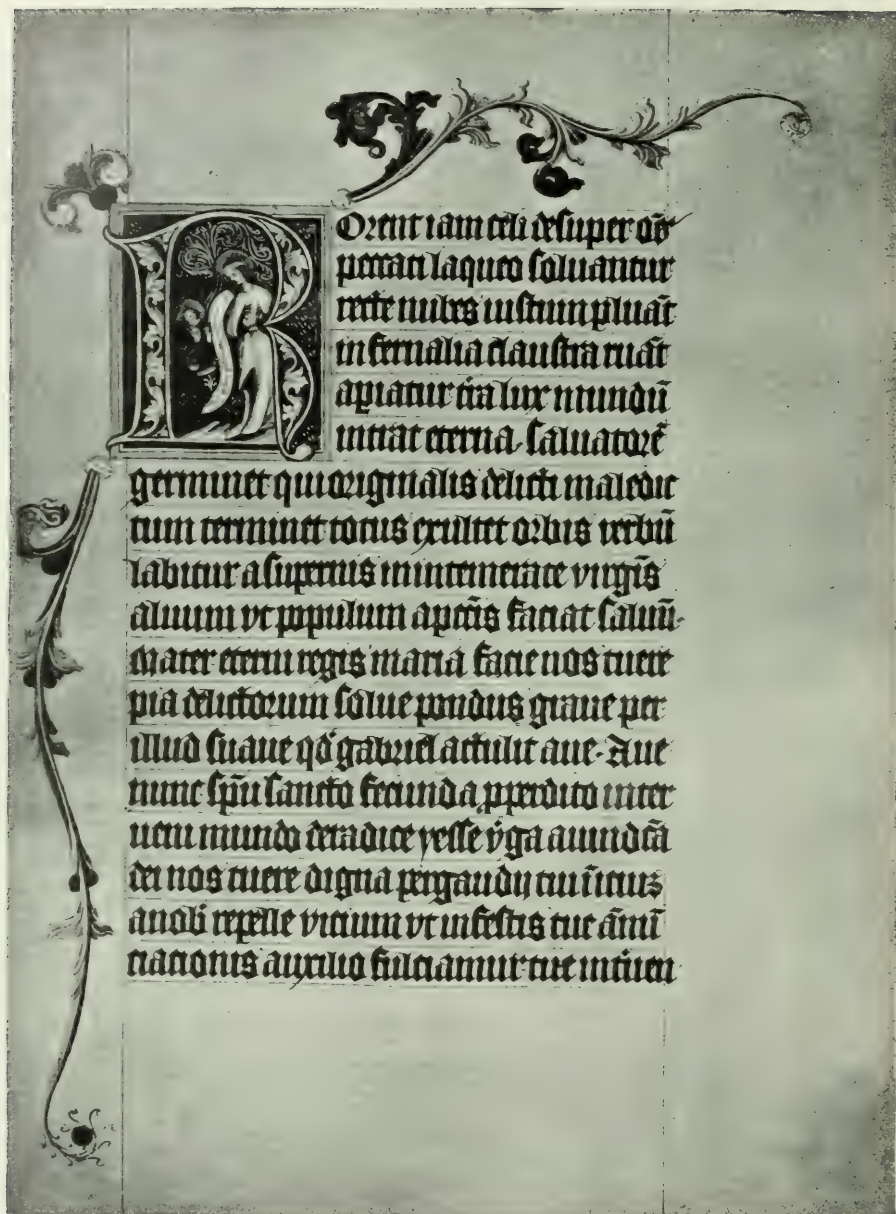 ROrent iam celi desuper obp
peccati laqueo soluantur
recte nubes iustum pluāt
infernalia claustra ruāt
apiatur tra lux mundū
intrat eterna. saluatorē
germinet qui originalis delicti maledic
tum terminet totus exultet orbis verbū
labitur a supernis in intemerate virgīs
aluum vt populum a pctīs faciat saluū.
Mater eterni regis maria fac nos tuere
pia delictorum solue pondus graue per
illud suaue qd gabriel attulit aue. Aue
nunc spū sancto fecunda pperdito inter
ueni mundo de radice yesse vga
dei nos tuere digna
a nob repelle vicium vt in festis tue ānū
ciacionis auxilio fulciamur tue intuen